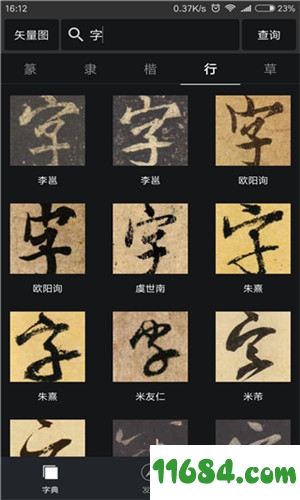 16:12 0.37K/s 33%
矢量图 字 查询
篆 隶 楷 行 草
字 字 字
李邕 李邕 欧阳询
字 字 字
欧阳询 虞世南 朱熹
字 字 字
朱熹 米友仁 米芾
字典
11684.com